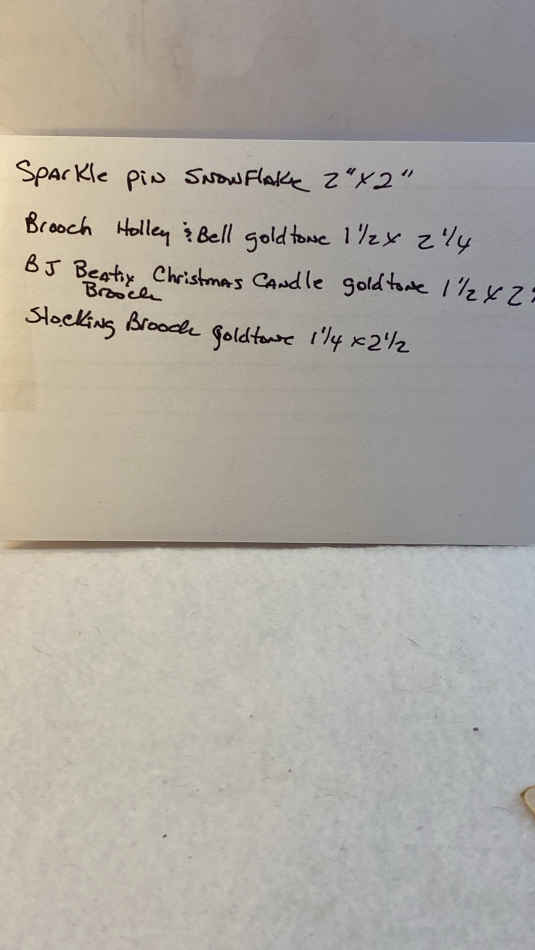 Sparkle pin Snowflake 2" x 2"
Brooch Holley & Bell goldtone 1 1/2 x 2 1/4
BJ Beatix Christmas Candle goldtone 1 1/2 x 2
Brooch
Stocking Brooch goldtone 1 1/4 x 2 1/2